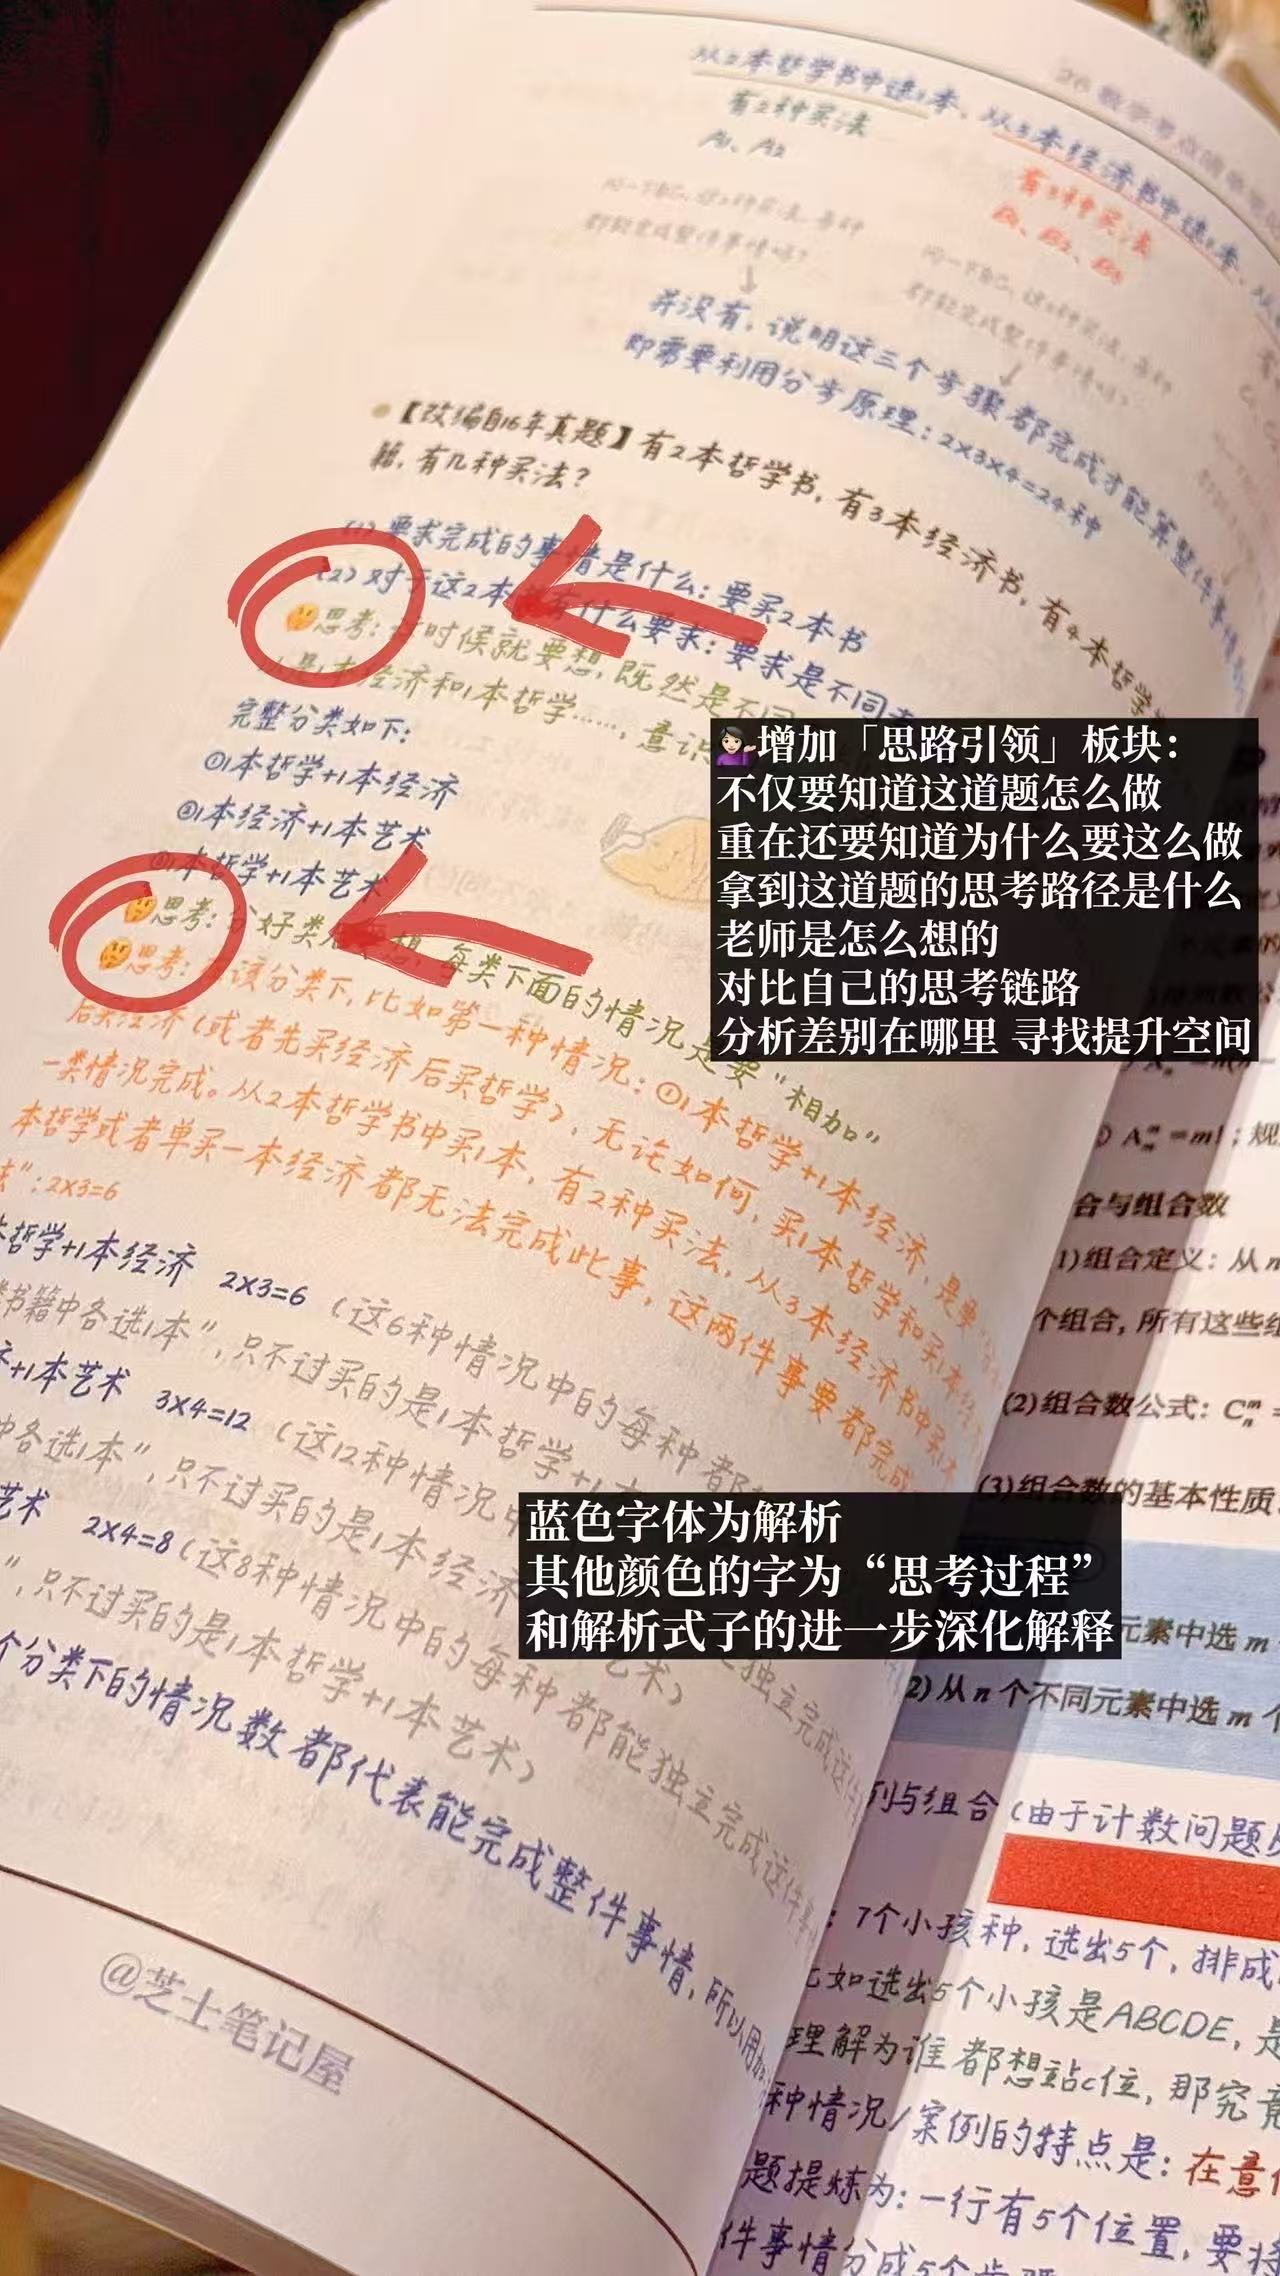 26数学考点清单
从2本哲学书中选1本、从3本经济书中选1本、从
有2种买法
A1、A2
有3种买法
B1、B2、B3
问一下自己,这2种买法,每种
都能完成整件事情吗?
问一下自己,这3种买法,每种
都能完成整件事情吗?
并没有,说明这三个步骤都完成才能算整件事情
即需要利用分步原理:2×3×4=24种
【改编自16年真题】有2本哲学书,有3本经济书,有4本哲学
籍,有几种买法?
(1)要求完成的事情是什么:要买2本书
(2)对于这2本书有什么要求:要求是不同
思考:有时候就要想,既然是不同
1本经济和1本哲学……,意识
完整分类如下:
①1本哲学+1本经济
②1本经济+1本艺术
③1本哲学+1本艺术
思考:分好类 想,每类下面的情况是要“相加”
思考: 该分类下,比如第一种情况:①1本哲学+1本经济,是要
后买经济(或者先买经济后买哲学),无论如何,买1本哲学和买1本经济
一类情况完成。从2本哲学书中买1本,有2种买法,从3本经济书中买1本
本哲学或者单买一本经济都无法完成此事,这两件事要都完成
法”:2×3=6
哲学+1本经济 2×3=6(这6种情况中的每种都
书籍中各选1本”,只不过买的是1本哲学+1本
+1本艺术 3×4=12(这12种情况中
中各选1本”,只不过买的是1本经济
艺术) 独立完成这
艺术 2×4=8(这8种情况中的每种都能独立完成这件事
”,只不过买的是1本哲学+1本艺术)
个分类下的情况数都代表能完成整件事情,所以用加
@芝士笔记屋
增加「思路引领」板块:
不仅要知道这道题怎么做
重在还要知道为什么要这么做
拿到这道题的思考路径是什么
老师是怎么想的
对比自己的思考链路
分析差别在哪里 寻找提升空间
蓝色字体为解析
其他颜色的字为“思考过程”
和解析式子的进一步深化解释
Aₘᵐ=m!;规
合与组合数
1)组合定义:从n
个组合,所有这些组
(2)组合数公式:Cₙᵐ=
(3)组合数的基本性质
元素中选m
2)从n个不同元素中选m个
列与组合(由于计数问题
:7个小孩种,选出5个,排成
比如选出5个小孩是ABCDE,是
理解为谁都想站c位,那究竟
种情况/案例的特点是:在意
题提炼为:一行有5个位置,要将
件事情分成5个步骤